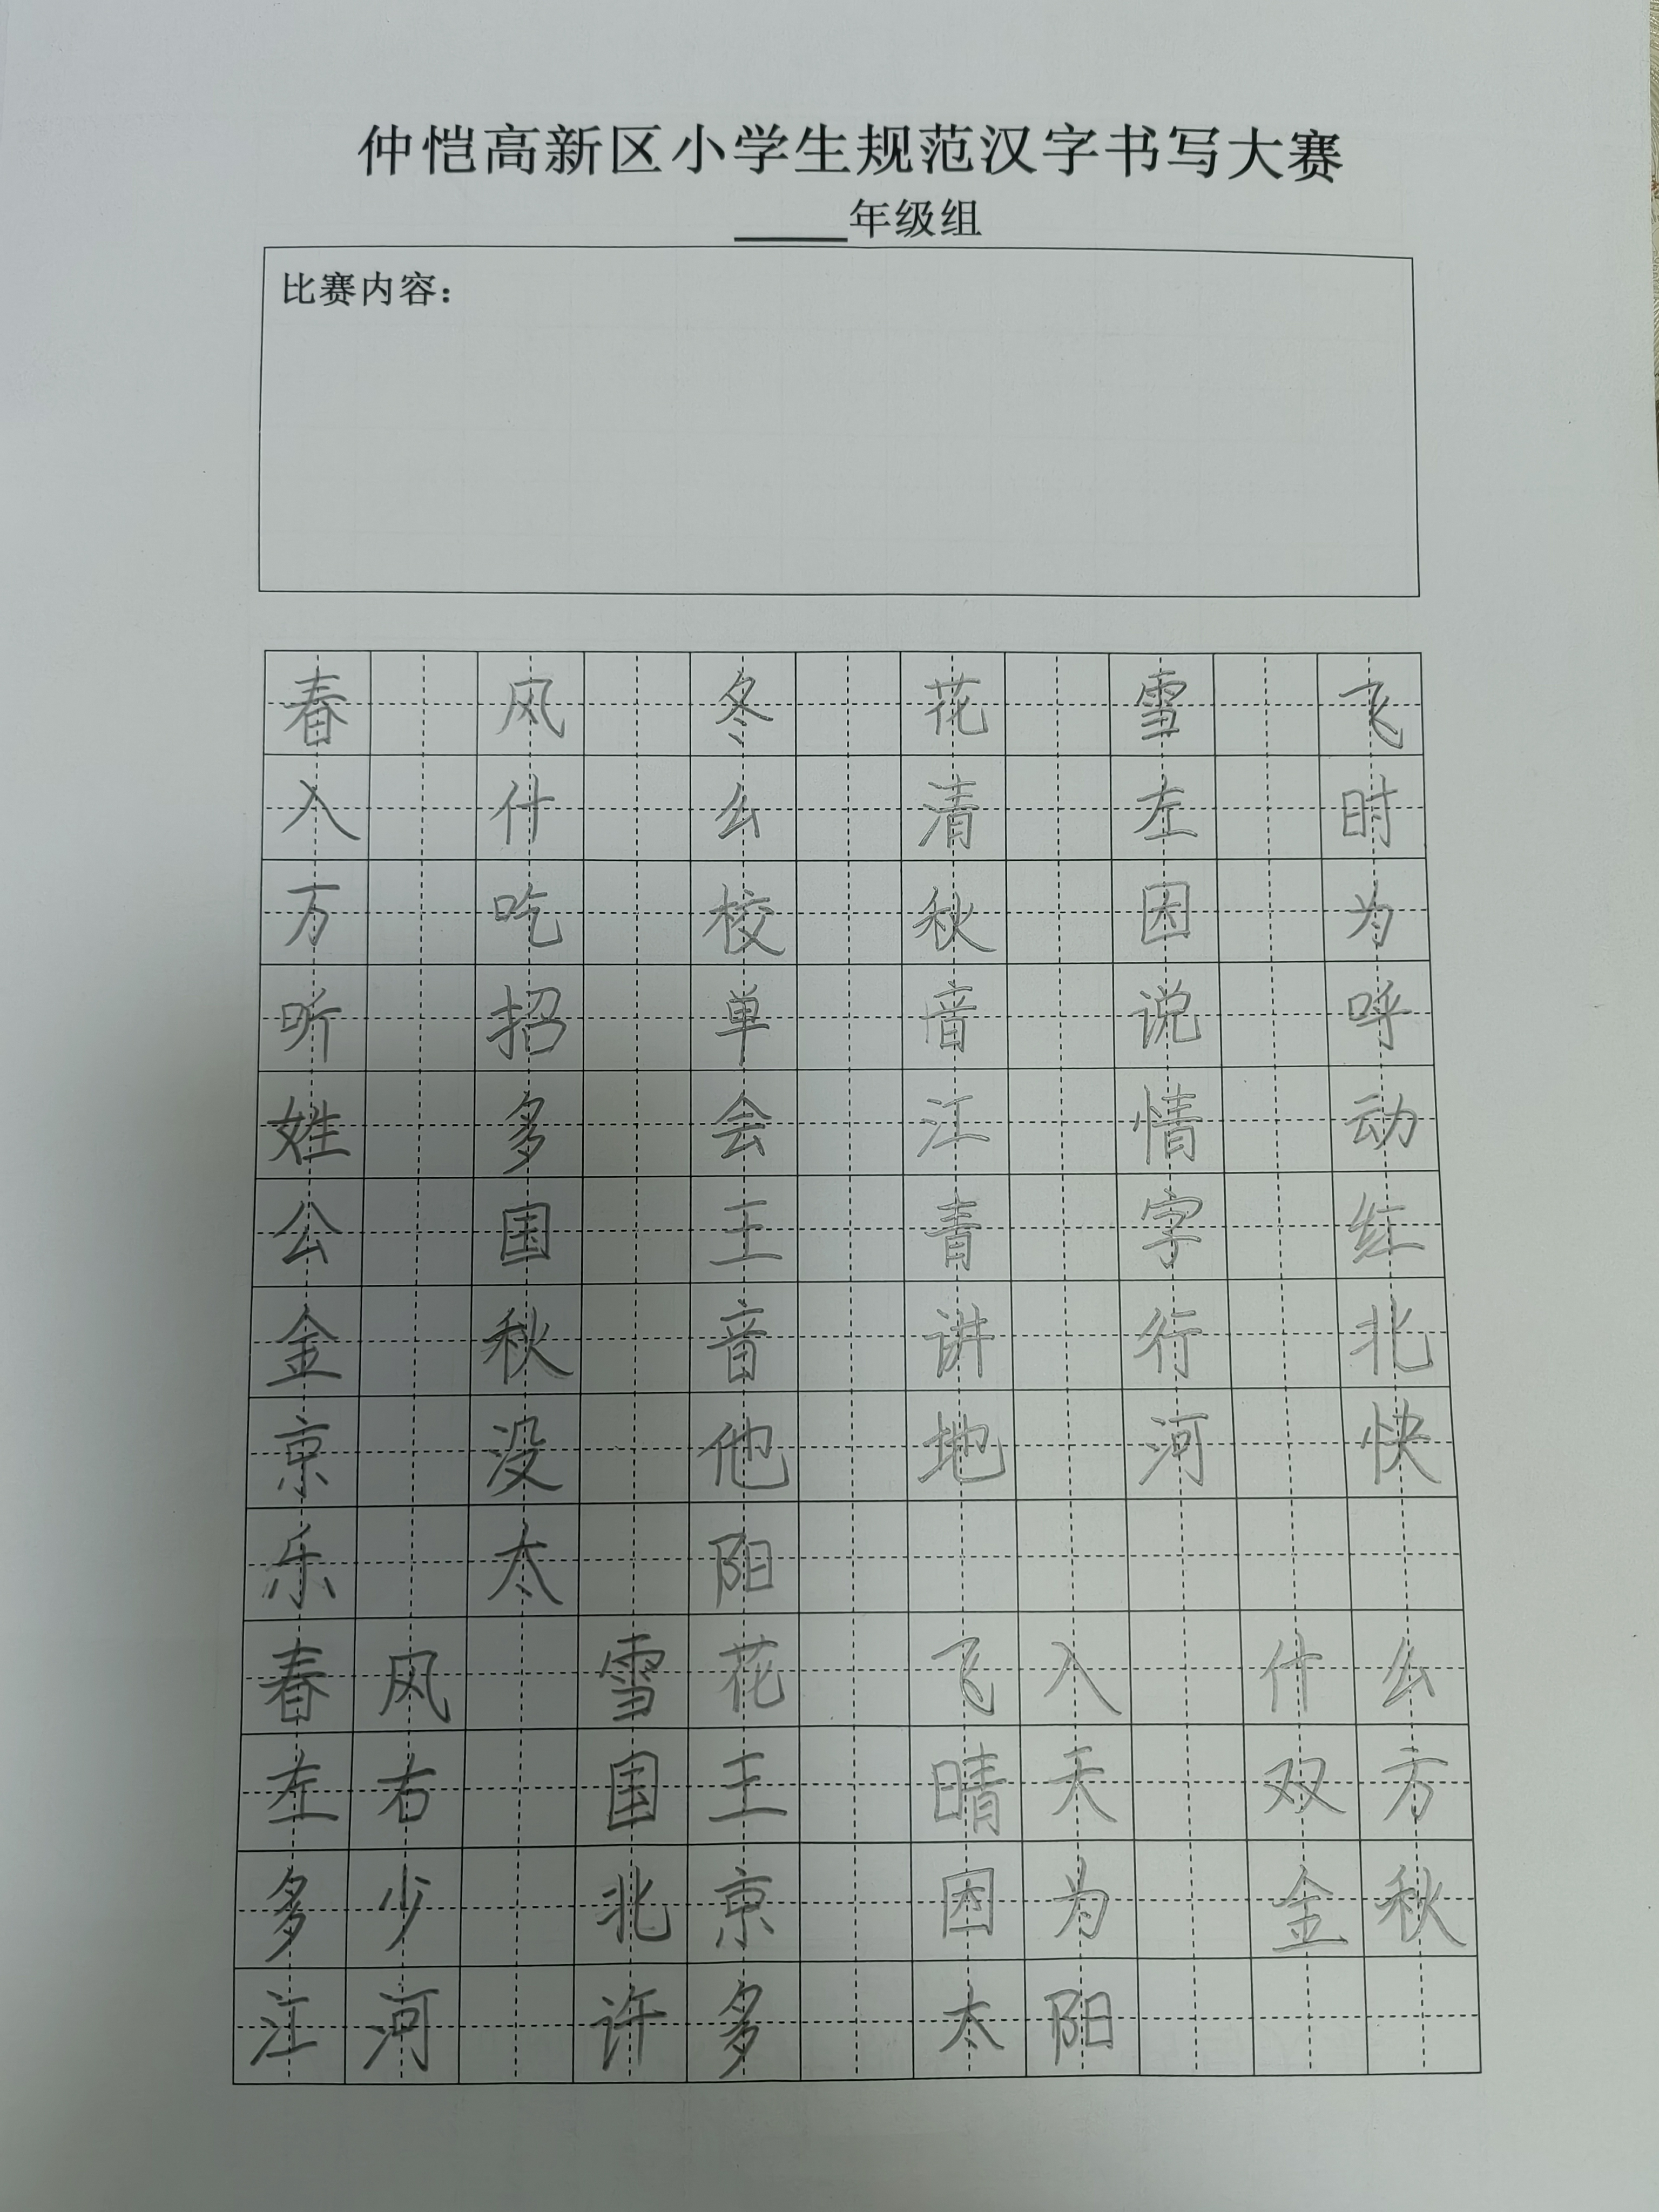 仲恺高新区小学生规范汉字书写大赛
_____年级组
比赛内容：
春 风 冬 花 雪 飞
入 什 么 清 左 时
万 吃 校 秋 因 为
听 招 单 音 说 呼
姓 多 会 江 情 动
公 国 王 青 字 红
金 秋 音 讲 行 北
京 没 他 地 河 快
乐 太 阳
春风 雪花 飞入 什么
左右 国王 晴天 双方
多少 北京 因为 金秋
江河 许多 太阳